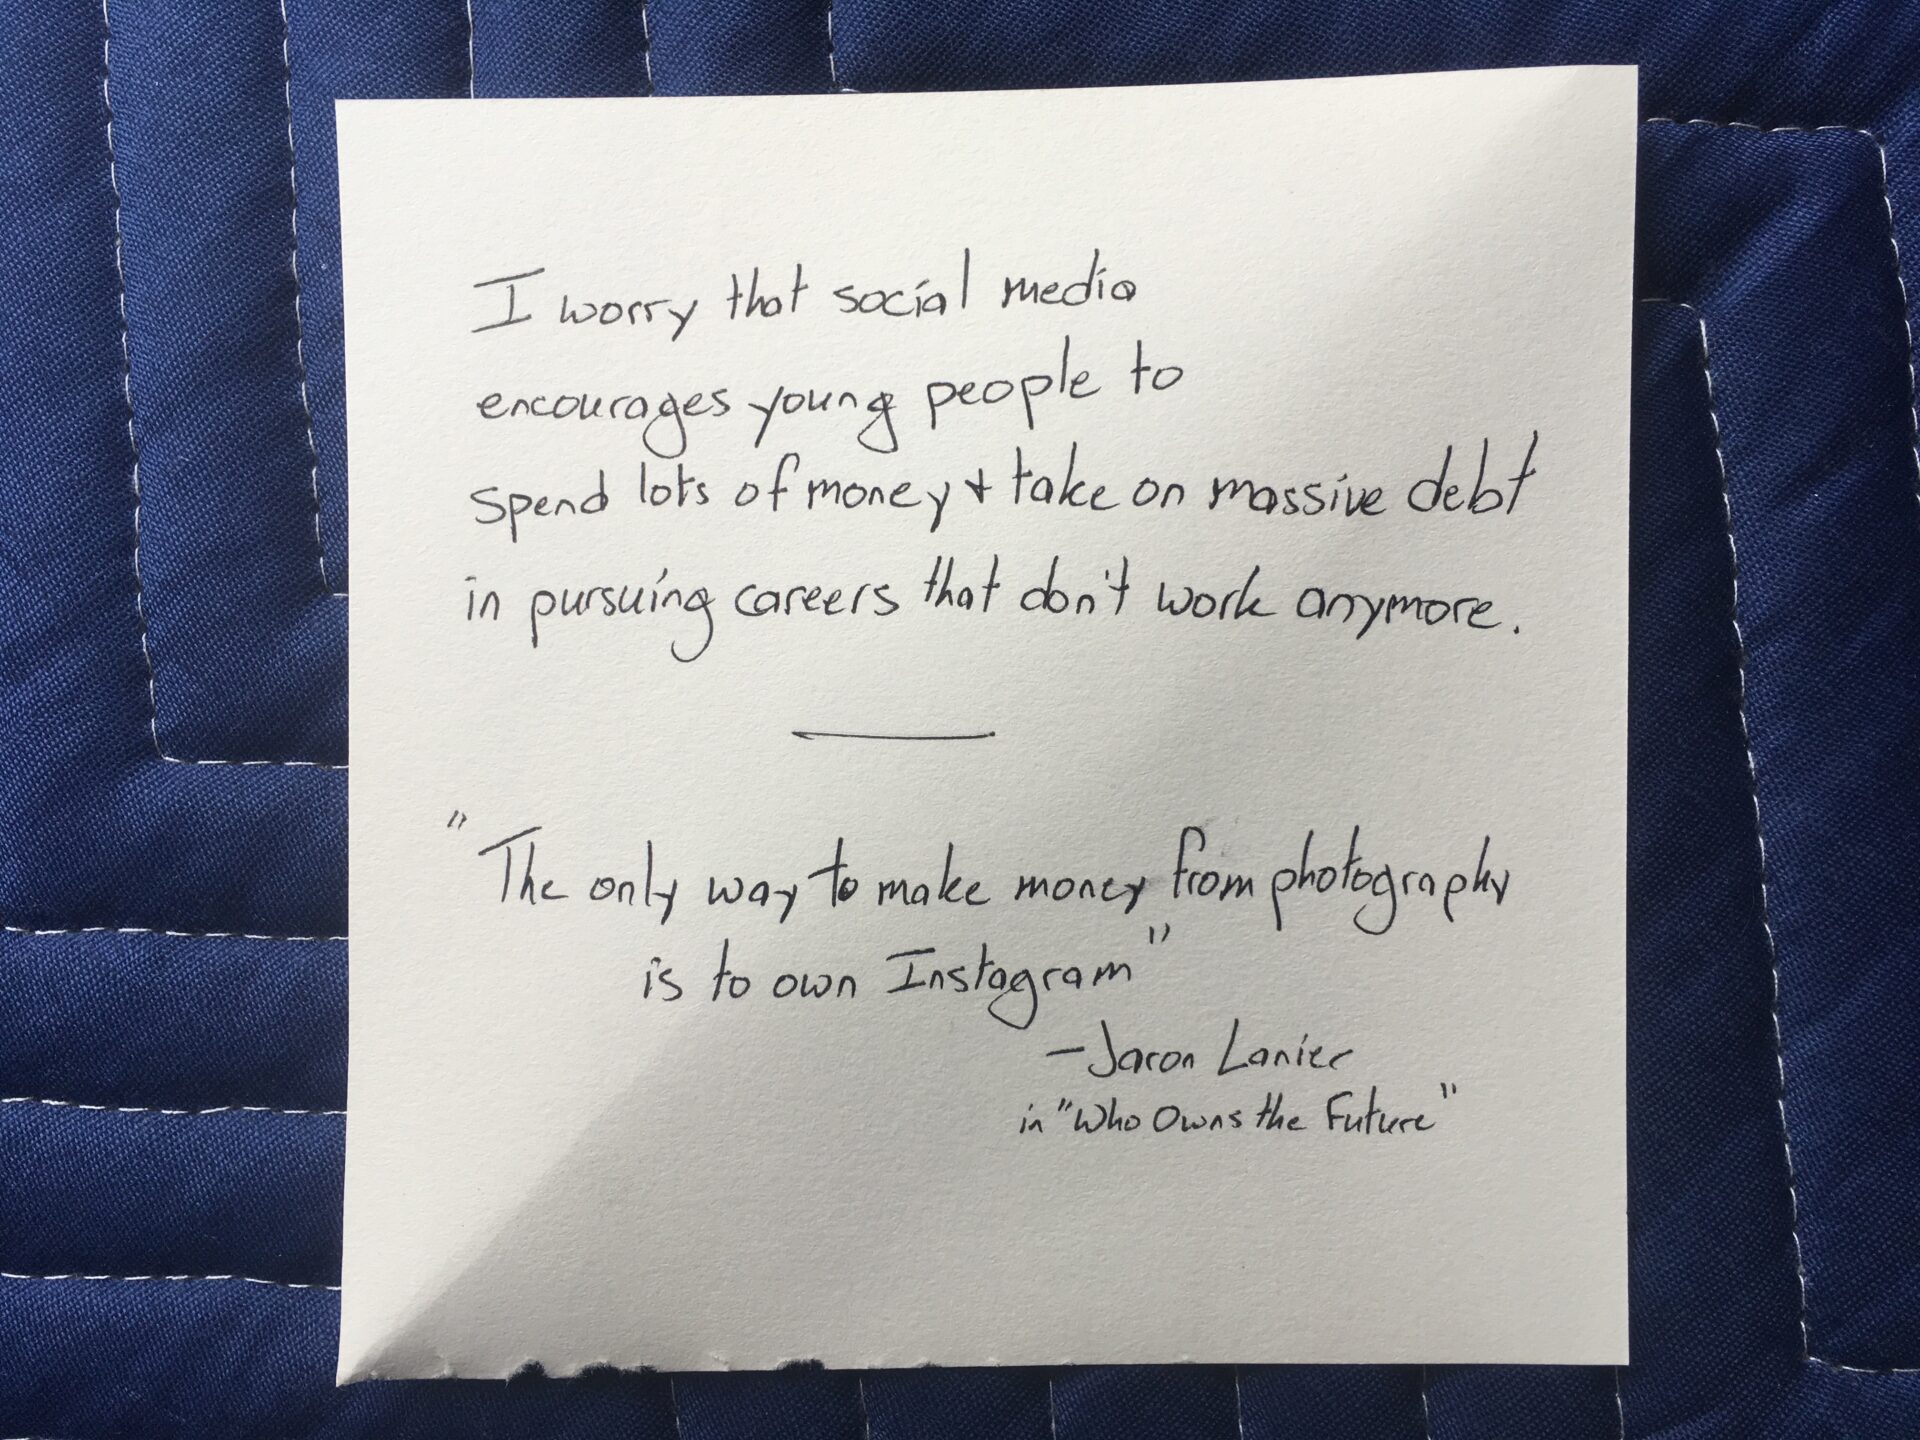 I worry that social media
encourages young people to
spend lots of money + take on massive debt
in pursuing careers that don't work anymore.
"The only way to make money from photography
is to own Instagram"
— Jaron Lanier
in "Who Owns the Future"